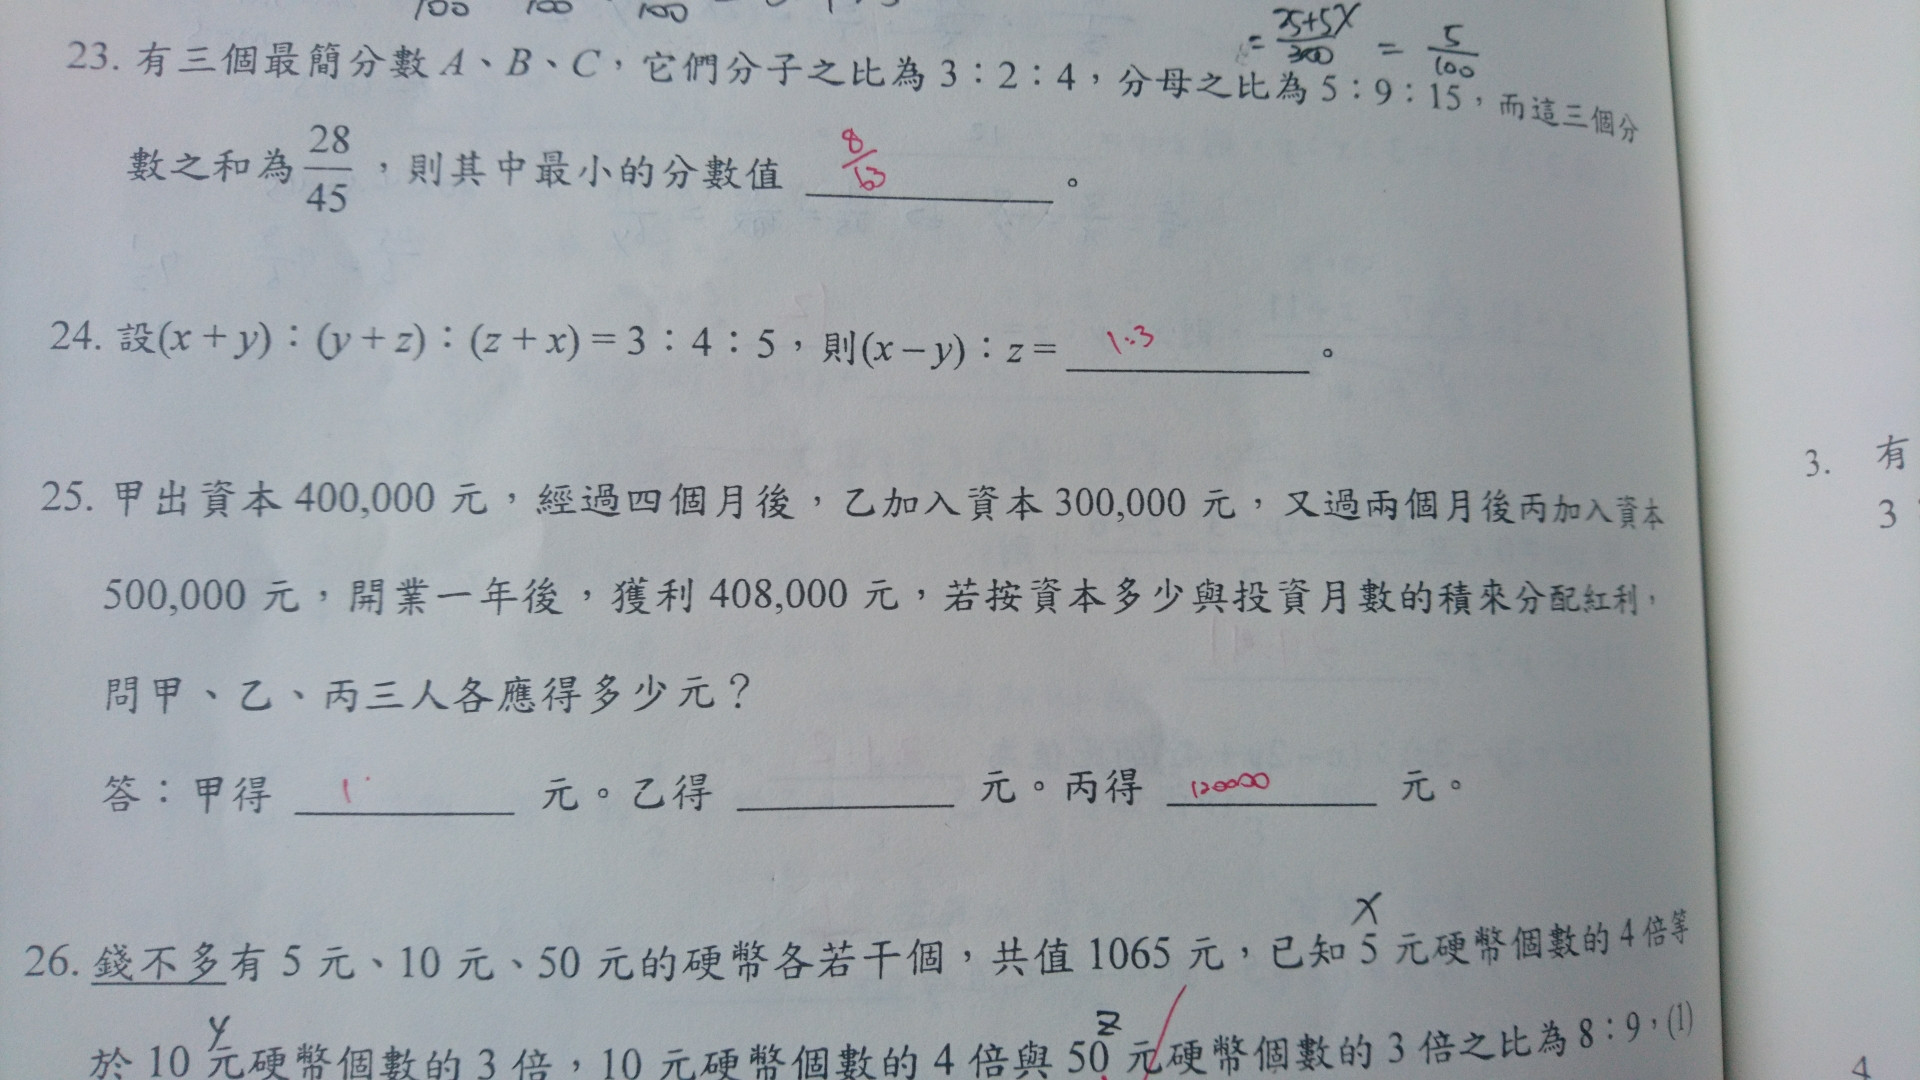 = 25+5X/300 = 5/100
23. 有三個最簡分數 A、B、C，它們分子之比為 3：2：4，分母之比為 5：9：15，而這三個分
數之和為 28/45，則其中最小的分數值 8/63 。
24. 設(x+y)：(y+z)：(z+x)=3：4：5，則(x−y)：z= 1:3 。
25. 甲出資本 400,000 元，經過四個月後，乙加入資本 300,000 元，又過兩個月後丙加入資本
500,000 元，開業一年後，獲利 408,000 元，若按資本多少與投資月數的積來分配紅利，
問甲、乙、丙三人各應得多少元？
答：甲得 1 元。乙得 元。丙得 120000 元。
X
26. 錢不多有 5 元、10 元、50 元的硬幣各若干個，共值 1065 元，已知 5 元硬幣個數的 4 倍等
y z
於 10 元硬幣個數的 3 倍，10 元硬幣個數的 4 倍與 50 元硬幣個數的 3 倍之比為 8：9，(1)
3. 有
3
4